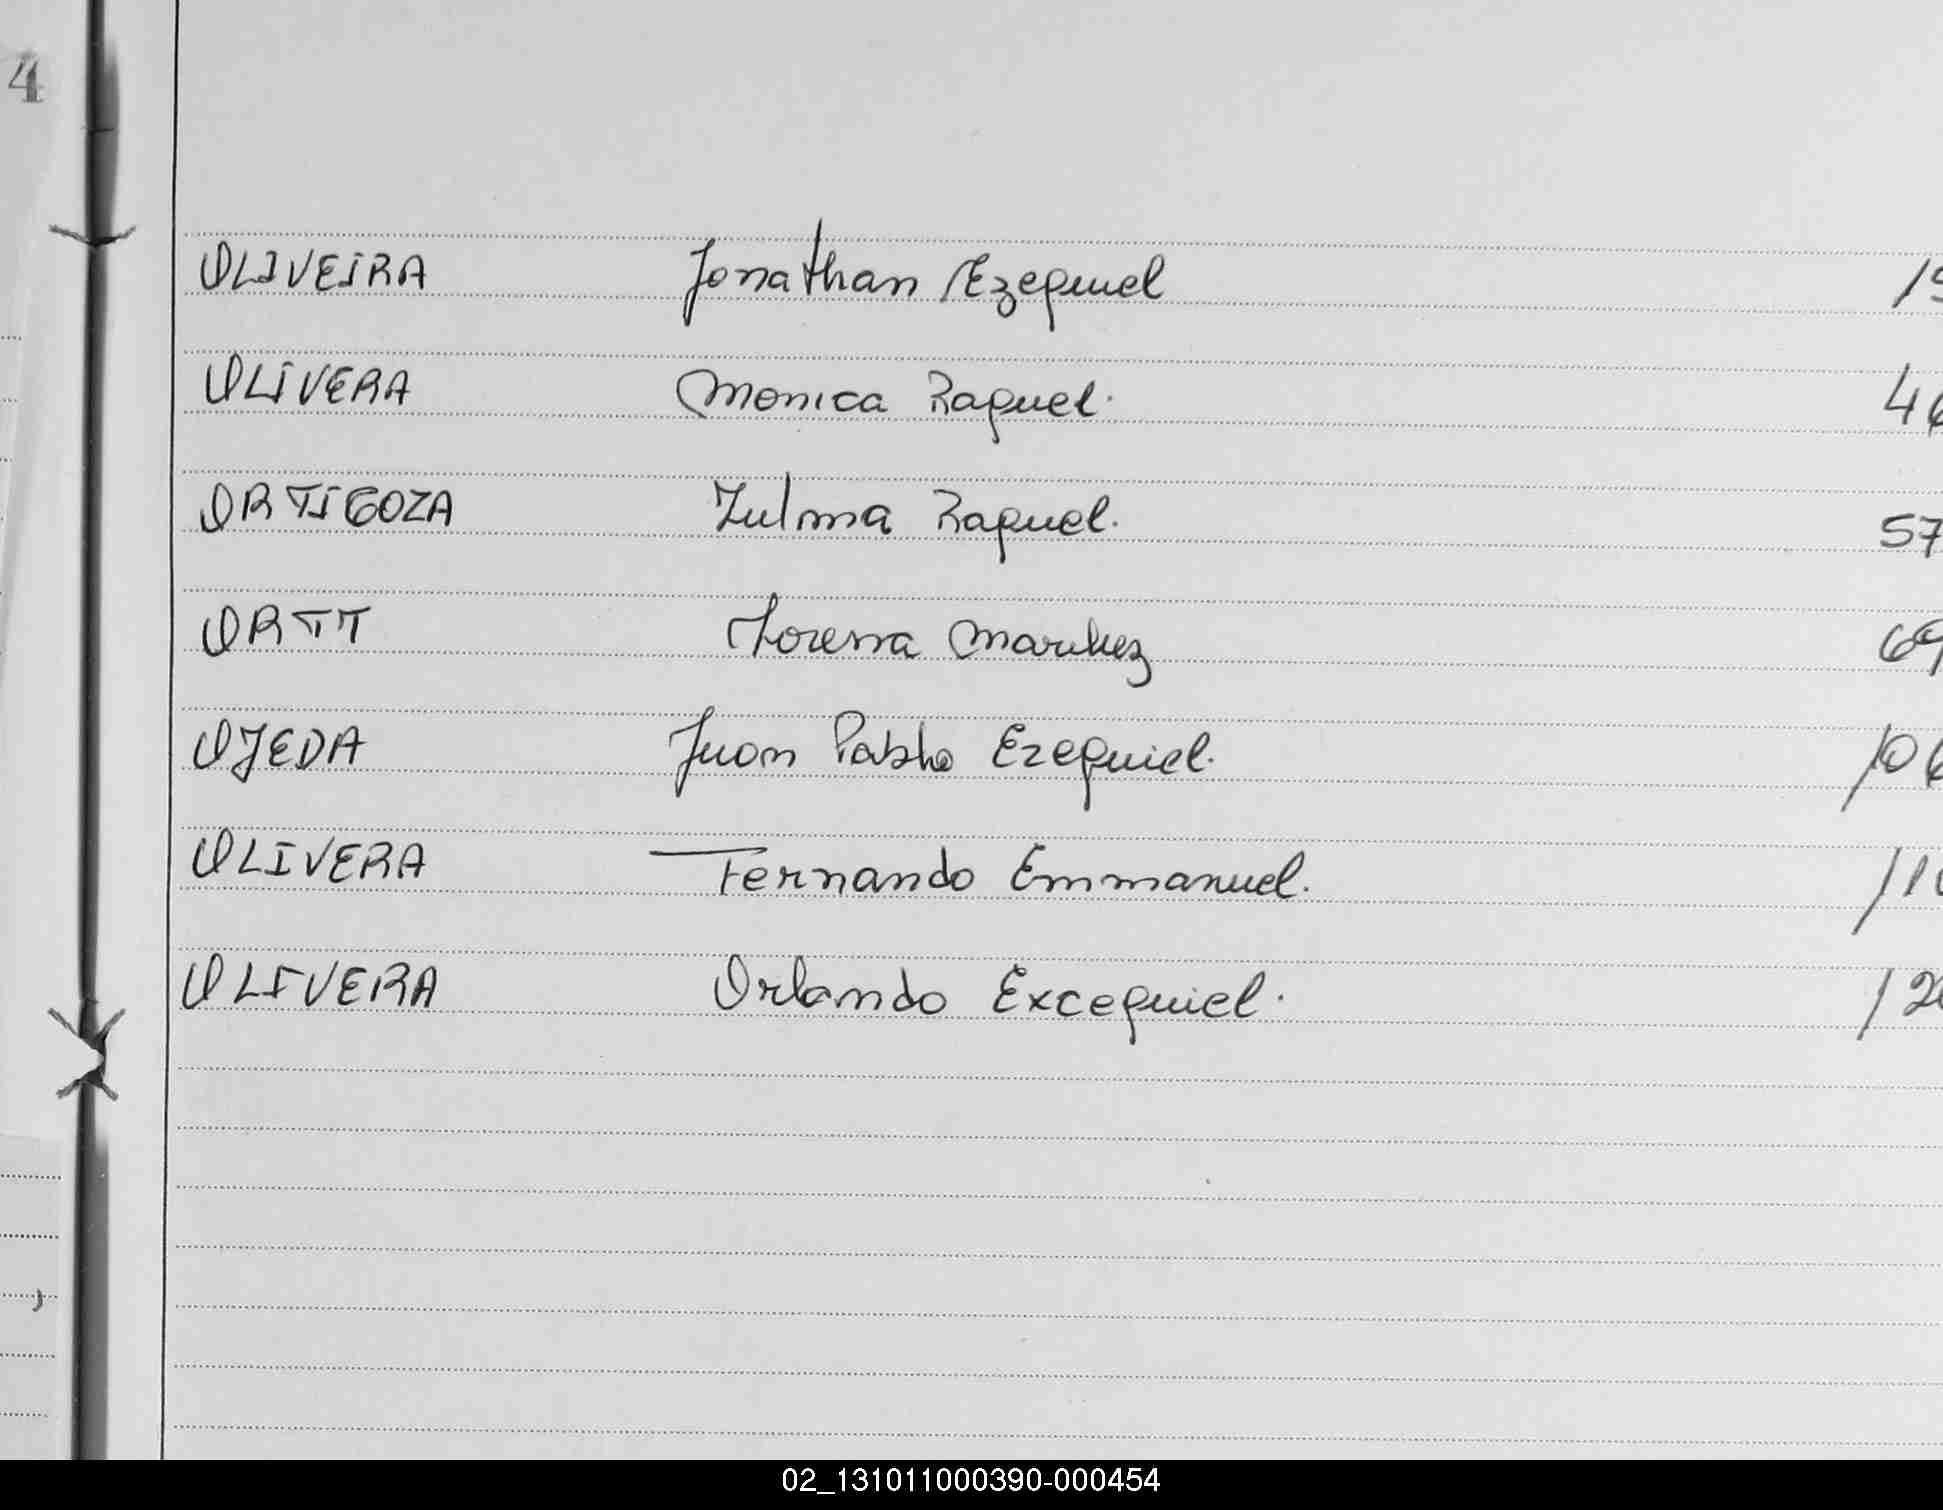 4
OLIVEIRA Jonathan Ezequiel 15
OLIVERA Monica Raquel. 46
ORTIGOZA Zulma Raquel. 57
ORTT Lorena 69
OJEDA Juan Pablo Ezequiel. 106
OLIVERA Fernando Emmanuel. 11
OLIVERA Orlando Excequiel. 12
02_131011000390-000454